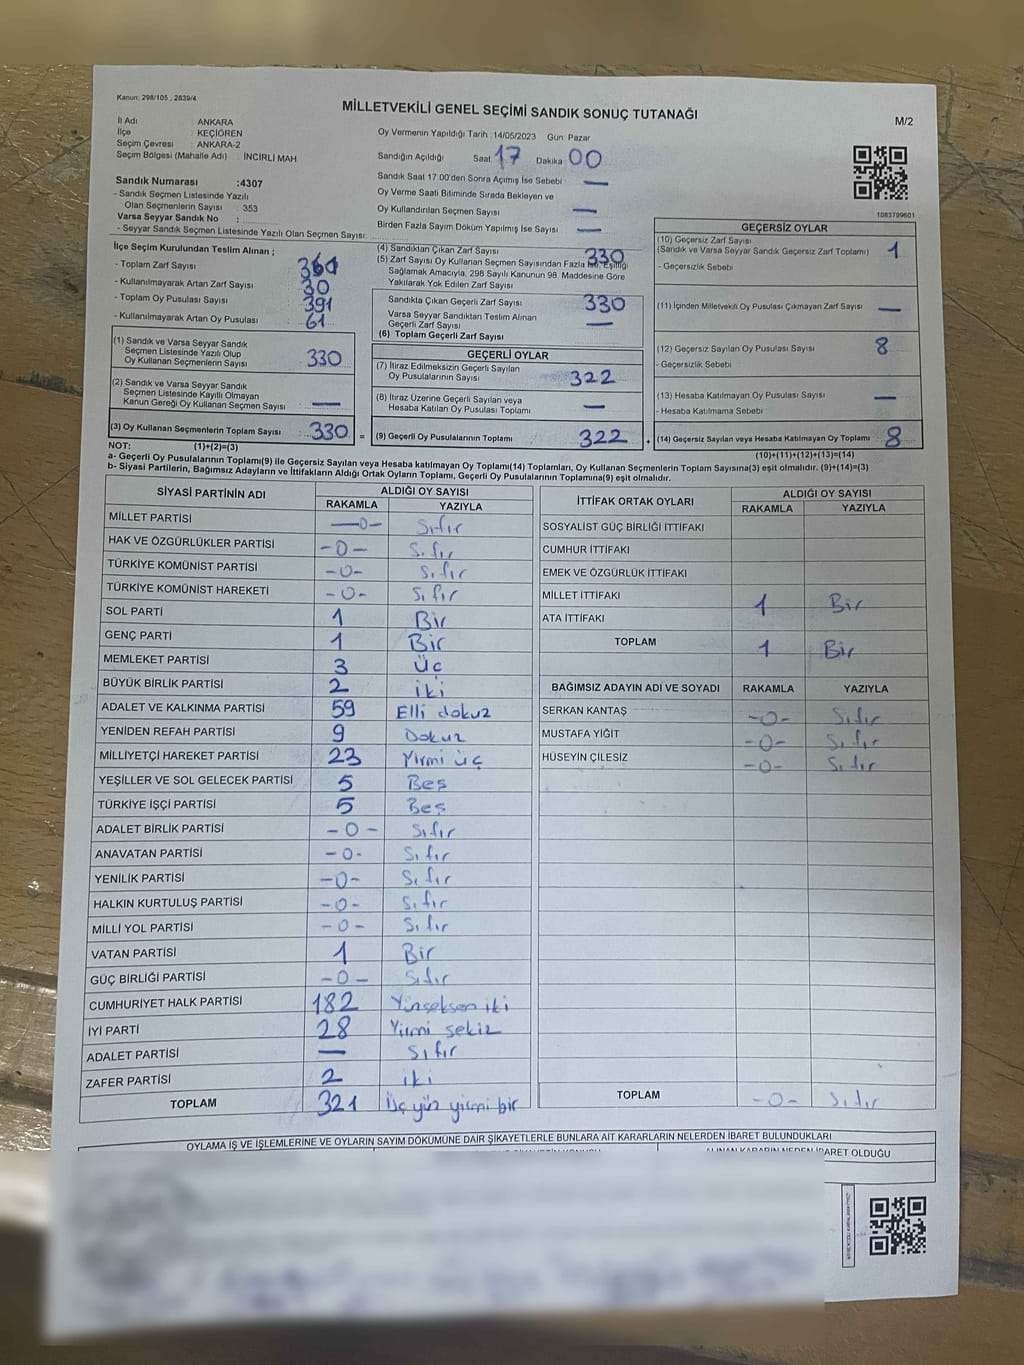 Kanun: 298/105 , 2839/4
MİLLETVEKİLİ GENEL SEÇİMİ SANDIK SONUÇ TUTANAĞI
M/2
İl Adı : ANKARA
İlçe : KEÇİÖREN
Seçim Çevresi : ANKARA-2
Seçim Bölgesi (Mahalle Adı) : İNCİRLİ MAH
Oy Vermenin Yapıldığı Tarih :14/05/2023 Gün: Pazar
Sandığın Açıldığı Saat 17 Dakika 00
Sandık Saat 17:00'den Sonra Açımış İse Sebebi : —
Oy Verme Saati Bitiminde Sırada Bekleyen ve
Oy Kullandırılan Seçmen Sayısı : —
Birden Fazla Sayım Döküm Yapılmış İse Sayısı : —
Sandık Numarası :4307
- Sandık Seçmen Listesinde Yazılı
Olan Seçmenlerin Sayısı : 353
Varsa Seyyar Sandık No :
- Seyyar Sandık Seçmen Listesinde Yazılı Olan Seçmen Sayısı:
1083799601
İlçe Seçim Kurulundan Teslim Alınan ;
- Toplam Zarf Sayısı : 360
- Kullanılmayarak Artan Zarf Sayısı : 30
- Toplam Oy Pusulası Sayısı : 391
- Kullanılmayarak Artan Oy Pusulası : 61
(1) Sandık ve Varsa Seyyar Sandık
Seçmen Listesinde Yazılı Olup
Oy Kullanan Seçmenlerin Sayısı : 330
(2) Sandık ve Varsa Seyyar Sandık
Seçmen Listesinde Kayıllı Olmayan
Kanun Gereği Oy Kullanan Seçmen Sayısı : —
(3) Oy Kullanan Seçmenlerin Toplam Sayısı : 330 =
(4) Sandıktan Çıkan Zarf Sayısı : 330
(5) Zarf Sayısı Oy Kullanan Seçmen Sayısından Fazla İse, Eşitliği
Sağlamak Amacıyla, 298 Sayılı Kanunun 98. Maddesine Göre
Yakılarak Yok Edilen Zarf Sayısı
Sandıkta Çıkan Geçerli Zarf Sayısı : 330
Varsa Seyyar Sandıktan Teslim Alınan
Geçerli Zarf Sayısı : —
(6) Toplam Geçerli Zarf Sayısı
GEÇERLİ OYLAR
(7) İtiraz Edilmeksizin Geçerli Sayılan
Oy Pusulalarının Sayısı : 322
(8) İtiraz Üzerine Geçerli Sayılan veya
Hesaba Katılan Oy Pusulası Toplamı : —
(9) Geçerli Oy Pusulalarının Toplamı : 322 +
GEÇERSİZ OYLAR
(10) Geçersiz Zarf Sayısı
(Sandık ve Varsa Seyyar Sandık Geçersiz Zarf Toplamı) : 1
- Geçersizlik Sebebi
(11) İçinden Milletvekili Oy Pusulası Çıkmayan Zarf Sayısı : —
(12) Geçersiz Sayılan Oy Pusulası Sayısı : 8
- Geçersizlik Sebebi
(13) Hesaba Katılmayan Oy Pusulası Sayısı : —
- Hesaba Katılmama Sebebi
(14) Geçersiz Sayılan veya Hesaba Katılmayan Oy Toplamı : 8
NOT: (1)+(2)=(3) (10)+(11)+(12)+(13)=(14)
a- Geçerli Oy Pusulalarının Toplamı(9) ile Geçersiz Sayılan veya Hesaba katılmayan Oy Toplamı(14) Toplamları, Oy Kullanan Seçmenlerin Toplam Sayısına(3) eşit olmalıdır. (9)+(14)=(3)
b- Siyasi Partilerin, Bağımsız Adayların ve İttifakların Aldığı Ortak Oyların Toplamı, Geçerli Oy Pusulalarının Toplamına(9) eşit olmalıdır.
SİYASİ PARTİNİN ADI ALDIĞI OY SAYISI
RAKAMLA YAZIYLA
MİLLET PARTİSİ —0— Sıfır
HAK VE ÖZGÜRLÜKLER PARTİSİ —0— Sıfır
TÜRKİYE KOMÜNİST PARTİSİ —0— Sıfır
TÜRKİYE KOMÜNİST HAREKETİ —0— Sıfır
SOL PARTİ 1 Bir
GENÇ PARTİ 1 Bir
MEMLEKET PARTİSİ 3 Üç
BÜYÜK BİRLİK PARTİSİ 2 iki
ADALET VE KALKINMA PARTİSİ 59 Elli dokuz
YENİDEN REFAH PARTİSİ 9 Dokuz
MİLLİYETÇİ HAREKET PARTİSİ 23 Yirmi üç
YEŞİLLER VE SOL GELECEK PARTİSİ 5 Beş
TÜRKİYE İŞÇİ PARTİSİ 5 Beş
ADALET BİRLİK PARTİSİ —0— Sıfır
ANAVATAN PARTİSİ —0— Sıfır
YENİLİK PARTİSİ —0— Sıfır
HALKIN KURTULUŞ PARTİSİ —0— Sıfır
MİLLİ YOL PARTİSİ —0— Sıfır
VATAN PARTİSİ 1 Bir
GÜÇ BİRLİĞİ PARTİSİ —0— Sıfır
CUMHURİYET HALK PARTİSİ 182 Yünseksen iki
İYİ PARTİ 28 Yirmi sekiz
ADALET PARTİSİ — Sıfır
ZAFER PARTİSİ 2 iki
TOPLAM 321 Üç yüz yirmi bir
İTTİFAK ORTAK OYLARI ALDIĞI OY SAYISI
RAKAMLA YAZIYLA
SOSYALİST GÜÇ BİRLİĞİ İTTİFAKI
CUMHUR İTTİFAKI
EMEK VE ÖZGÜRLÜK İTTİFAKI
MİLLET İTTİFAKI 1 Bir
ATA İTTİFAKI
TOPLAM 1 Bir
BAĞIMSIZ ADAYIN ADI VE SOYADI RAKAMLA YAZIYLA
SERKAN KANTAŞ —0— Sıfır
MUSTAFA YİĞİT —0— Sıfır
HÜSEYİN ÇİLESİZ —0— Sıfır
TOPLAM —0— Sıfır
OYLAMA İŞ VE İŞLEMLERİNE VE OYLARIN SAYIM DÖKÜMÜNE DAİR ŞİKAYETLERLE BUNLARA AİT KARARLARIN NELERDEN İBARET BULUNDUKLARI
ALINAN KARARIN NEDEN İBARET OLDUĞU